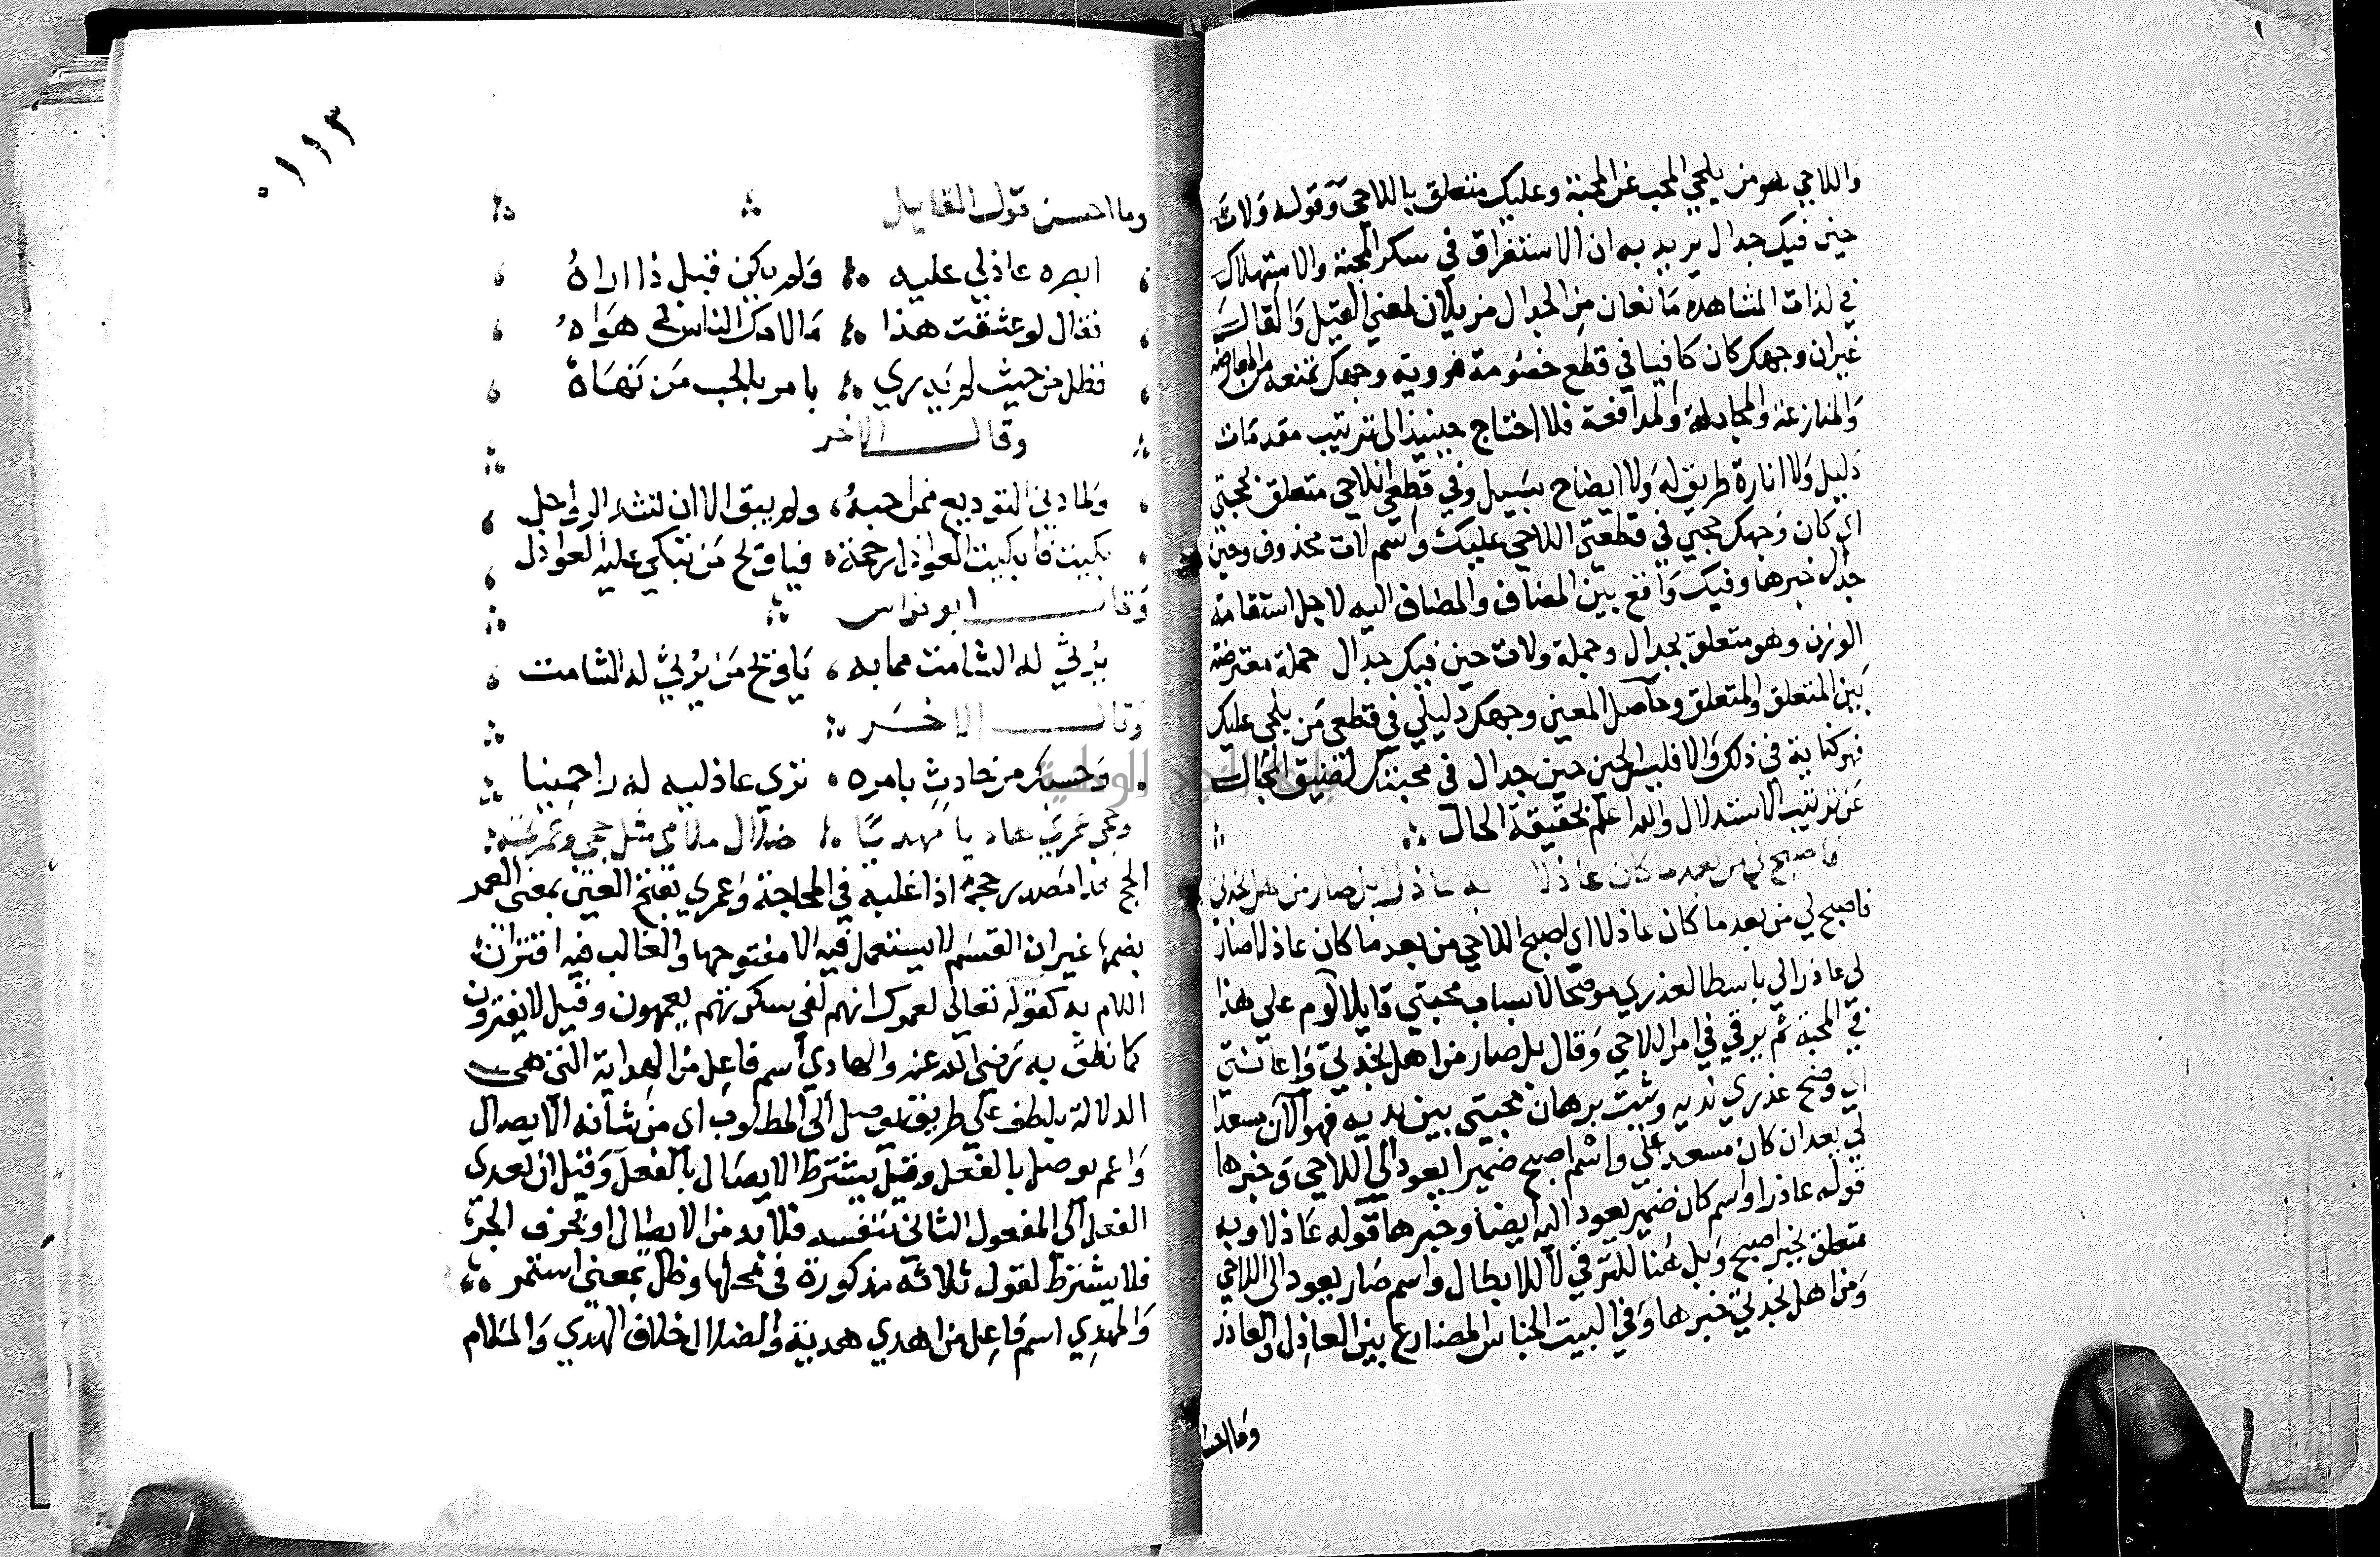 واللاحي هو من يلحي المحب عن المحبة وعليك متعلق باللاحي وقوله ولات
حين فيك جدال يريد به ان الاستغراق في سكر المحبة والاستهلاك
في لذات المشاهدة مانعان من الجدال مزيلان لمعنى القيل والقال
غيران وجهك كان كافيا في قطع خصومة فروية وجهك تمنعه من المعارضة
والمنازعة والمجادلة والمدافعة فلا احتاج حينيذ الى ترتيب مقدمات
دليل ولا انارة طريق له ولا ايضاح سبيل وفي قطعي اللاحي متعلق بحجتي
اي كان وجهك حجتي في قطعي اللاحي عليك واسم لات محذوف وحين
جدال خبرها وفيك واقع بين المضاف والمضاف اليه لاجل استقامة
الوزن وهو متعلق بجدال وجملة ولات حين فيك جدال جملة معترضة
بين المتعلق والمتعلق وحاصل المعنى وجهك دليلي في قطعي من يلحي عليك
فهو كفاية في ذلك والا فليس الحين حين جدال في محبتك لضيق المجال
عن ترتيب الاستدلال والله اعلم بحقيقة الحال
فاصبح لي من بعد ما كان عاذلا به عاذرا بل صار من اهل نجدتي
فاصبح لي من بعد ما كان عاذلا اي اصبح اللاحي من بعد ما كان عاذلا صار
لي عاذرا لي باسطا لعذري موضحا لاسباب محبتي قايلا لا لوم علي هذا
في المحبة ثم ترقي في امر اللاحي وقال بل صار من اهل نجدتي واعانتي
اي وضح عذري لديه وثبت برهان محبتي بين يديه فهو الآن مسعدا
لي بعد ان كان مسعدا علي واسم اصبح ضميرا يعود الي اللاحي وخبرها
قوله عاذرا واسم كان ضمير يعود اليه ايضا وخبرها قوله عاذلا وبه
متعلق بخبر اصبح وبل هنا للترقي لا للابطال واسم صار يعود الى اللاحي
ومن اهل نجدتي خبرها وفي البيت الجناس المضارع بين العاذل والعاذر
وما احسن
١١٣
وما احسن قول القايل
ابصره عاذلي عليه ولم يكن قبل ذا اراه
فقال لو عشقت هذا ما لامك الناس في هواه
فظل من حيث لم يدري يامر بالحب من نهاه
وقال الاخر
ولما دني التوديع ممن احبه ولم يبق الا ان تشد الرواحل
بكيت فابكيت العواذل رحمة فيا ويح من تبكي عليه العواذل
وقال ابو نواس
يرثي له الشامت مما به يا ويح من يرثي له الشامت
وقال الاخر
وحسبك من حادث بامره تري عاذليه له راحمينا
وحجي عمري هاديا مهديا ضلال ملامي مثل حجي وعمرتي
الحج هذا مصدر حجه اذا غلبه في المحاجة وعمري بفتح العين بمعنى العمر
بضمها غيران القسم لا يستعمل فيه الا مفتوحها والغالب فيه اقتران
اللام به كقوله تعالى لعمرك انهم لفي سكرتهم يعمهون وقيل لا يقترن
كما نطق به رضي الله عنه والهادي اسم فاعل من الهداية التي هي
الدلالة بلطف علي طريق يوصل الى المطلوب اى من شانه الايصال
وان لم يوصل بالفعل وقيل يشترط الايصال بالفعل وقيل ان تعدى
الفعل الى المفعول الثاني بنفسه فلا بد من الايصال او بحرف الجر
فلا يشترط لقول ثلاثة مذكورة في محلها وظل بمعنى استمر
والمهدي اسم فاعل من اهدي هدية والضلال خلاف الهدي والملام